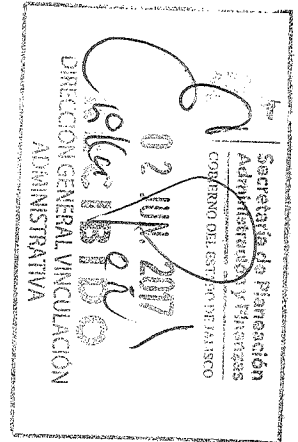 Secretaría de Planeación
Administración y Finanzas
GOBIERNO DEL ESTADO DE JALISCO
02 JUN. 2017
RECIBIDO
DIRECCIÓN GENERAL VINCULACIÓN
ADMINISTRATIVA